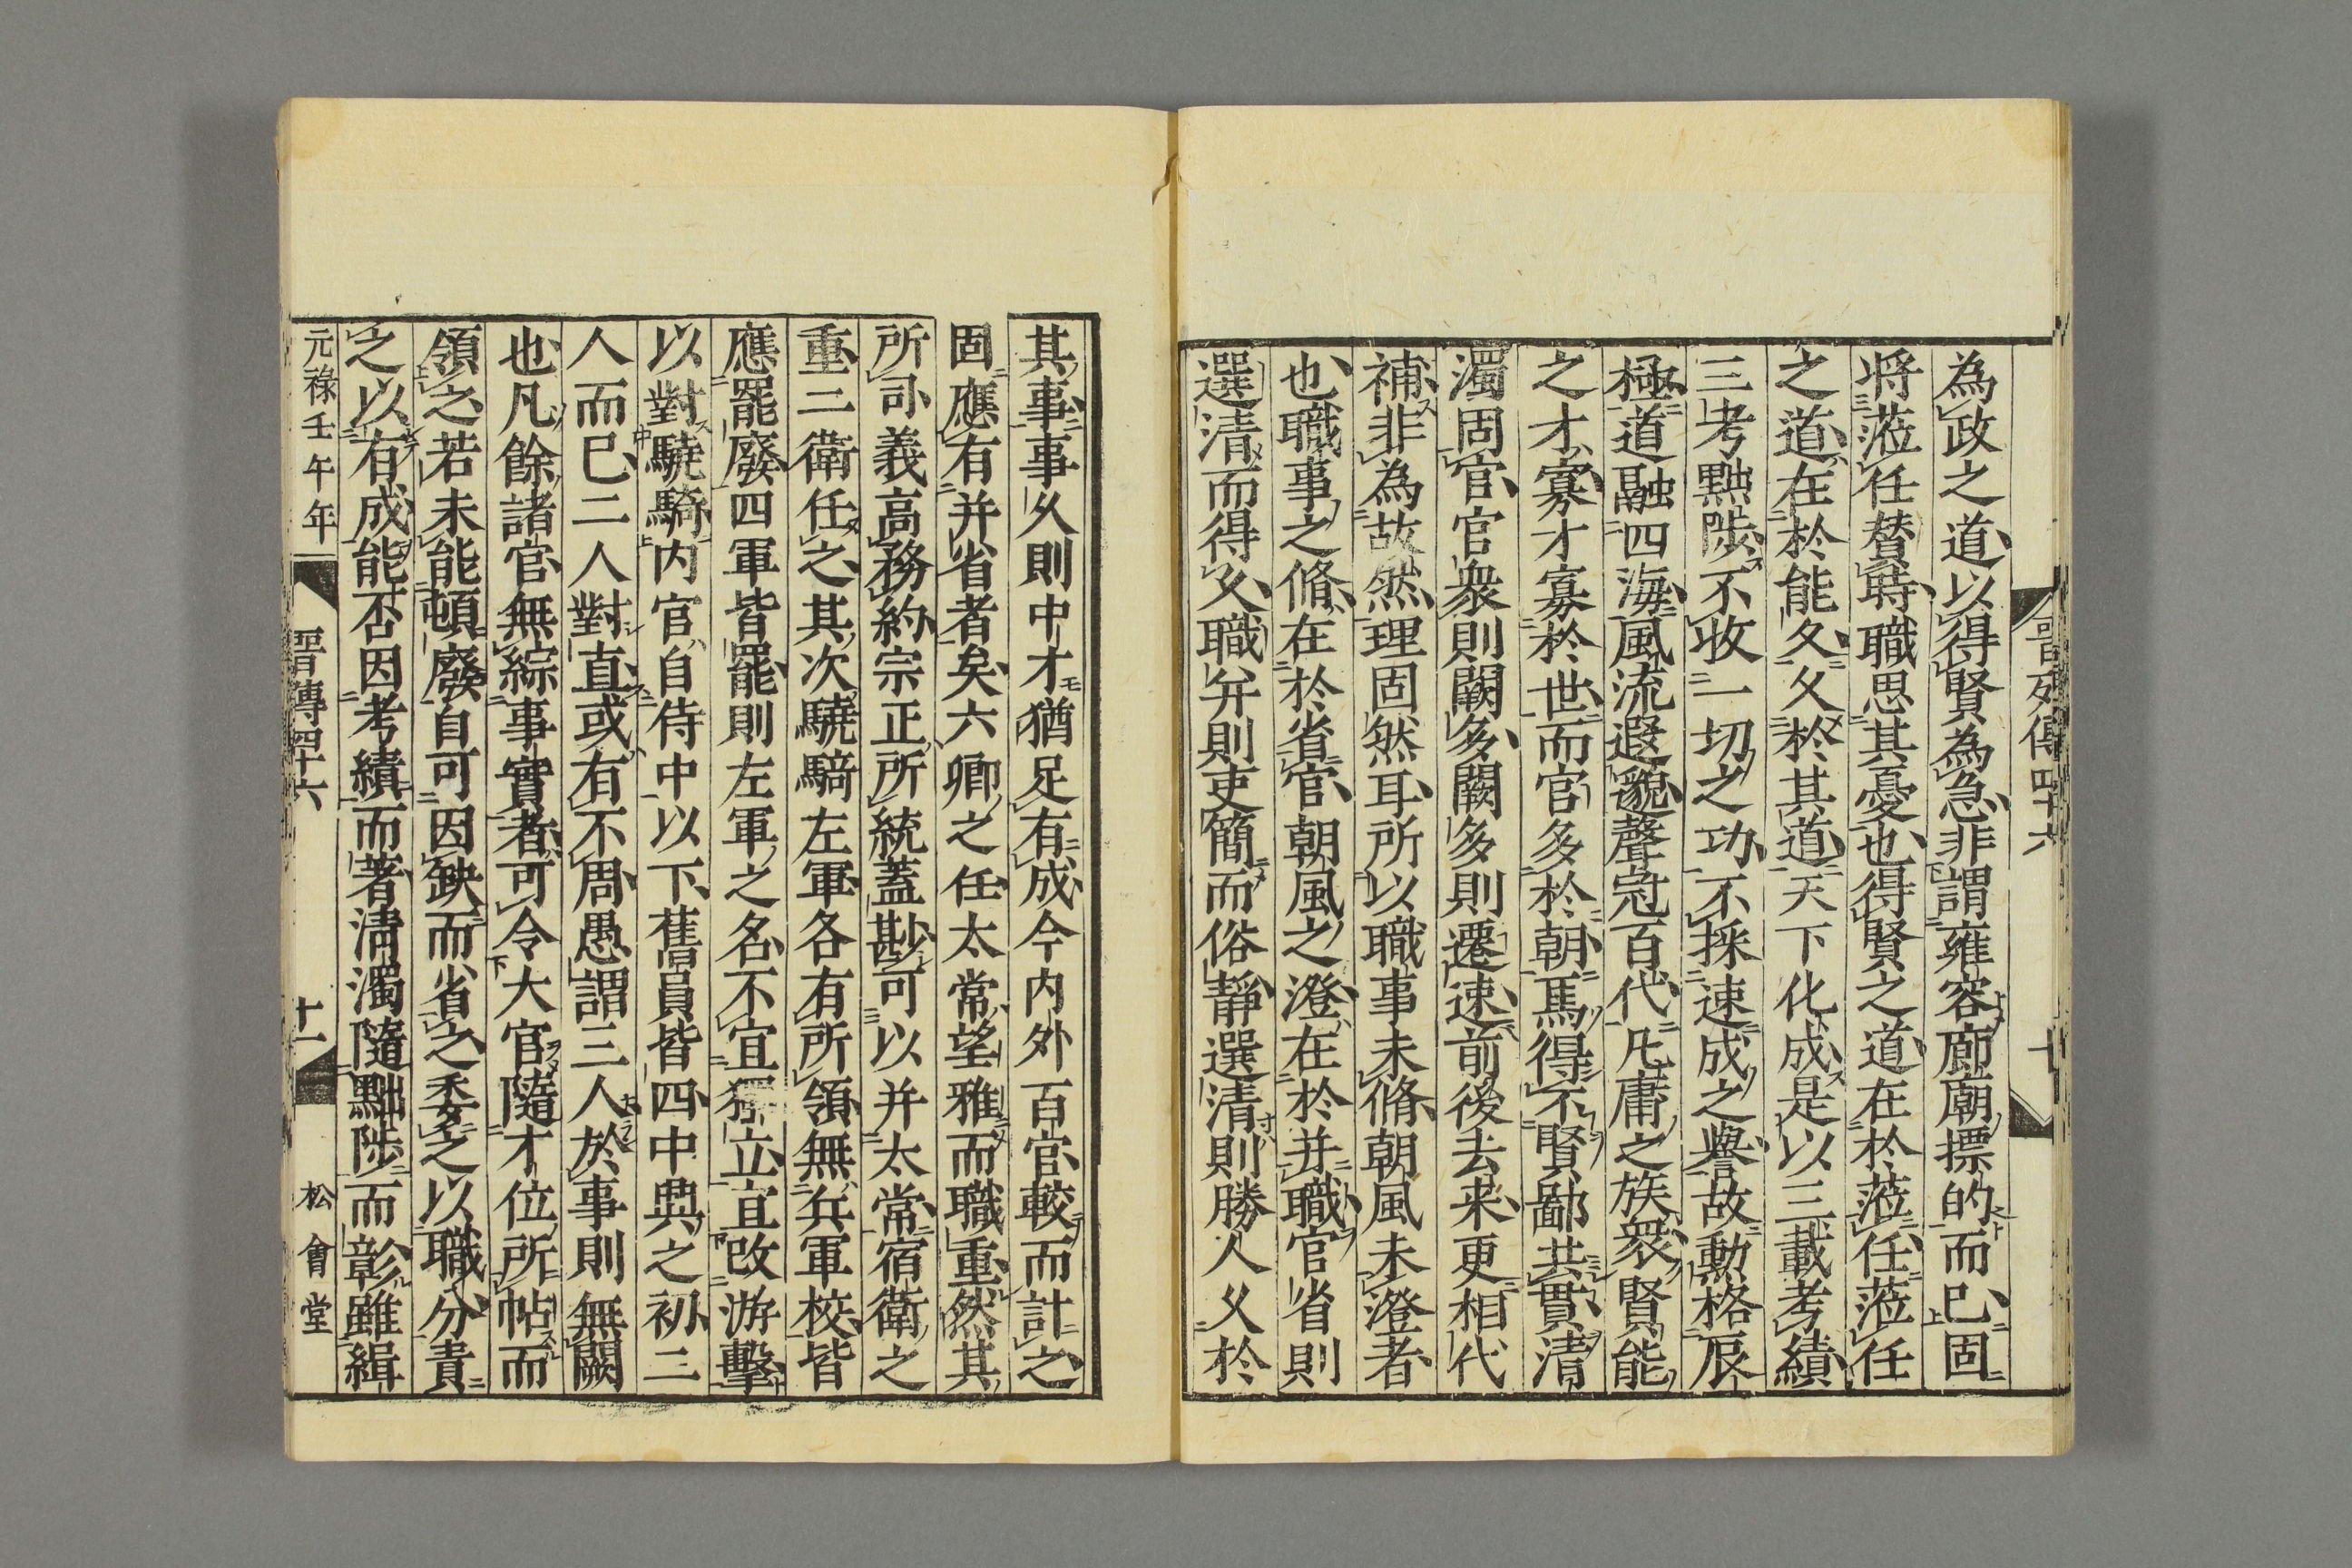 晉列傳四十六 十
為政之道以得賢為急非謂雍容廊廟摽的而已固
將蒞任賛時職思其憂也得賢之道在於蒞任蒞任
之道在於能久久於其道天下化成是以三載考績
三考黜陟不收一切之功不採速成之譽故勳格辰
極道融四海風流遐邈聲冠百代凡庸之族衆賢能
之才寡才寡於世而官多於朝焉得不賢鄙共貫清
濁同官官衆則闕多闕多則遷速前後去来更相代
補非為故然理固然耳所以職事未脩朝風未澄者
也職事之脩在於省官朝風之澄在於并職官省則
選清而得久職并則吏簡而俗靜選清則勝人久於
其事事久則中才猶足有成今内外百官較而計之
固應有并省者矣六卿之任太常望雅而職重然其
所司義高務約宗正所統蓋尠可以并太常宿衛之
重二衛任之其次驍騎左軍各有所領無兵軍校皆
應罷廢四軍皆罷則左軍之名不宜獨立宜改游擊
以對驍騎内官自侍中以下舊員皆四中興之初二
人而已二人對直或有不周愚謂三人於事則無闕
也凡餘諸官無綜事實者可令大官隨才位所帖而
領之若未能頓廢自可因缺而省之委之以職分責
之以有成能否因考績而著清濁隨黜陟而彰雖緝
元祿壬午年 晋傳四十六 十一 松會堂